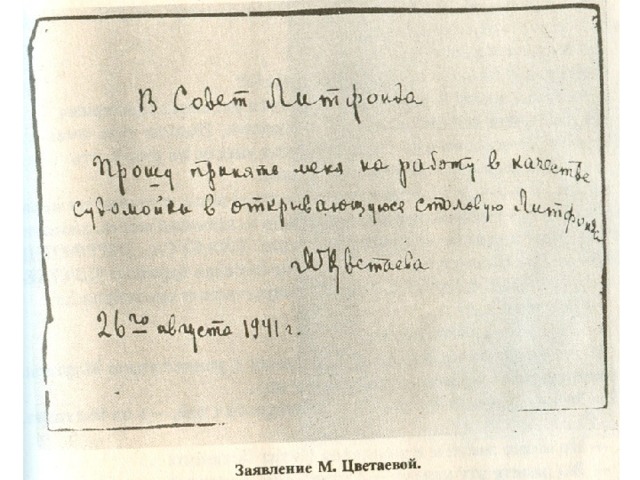 В Совет Литфонда
Прошу принять меня на работу в качестве
судомойки в открывающуюся столовую Литфонда
МЦветаева
26го августа 1941 г.
Заявление М. Цветаевой.